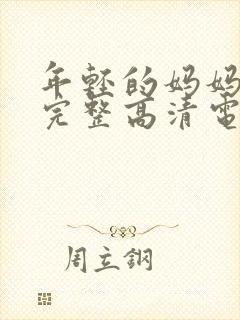 年轻的妈妈
完整高清電
周立鋼